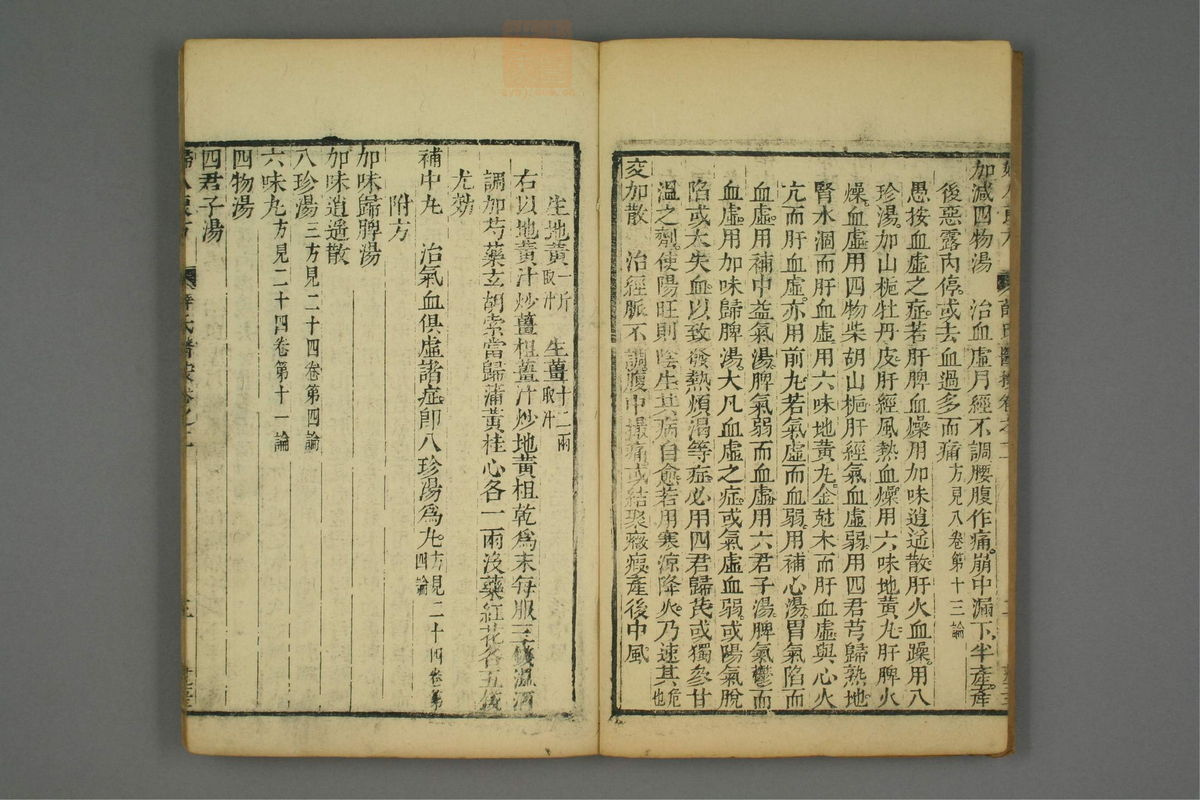 加減四物湯　治血虛月經不調腰腹作痛崩中漏下半產產
後惡露內停或去血過多而痛方見八卷第十三論
愚按血虛之症若肝脾血燥用加味逍遙散肝火血躁用八
珍湯加山梔牡丹皮肝經風熱血燥用六味地黃丸肝脾火
燥血虛用四物柴胡山梔肝經氣血虛弱用四君芎歸熟地
腎水涸而肝血虛用六味地黃丸金尅木而肝血虛與心火
亢而肝血虛亦用前丸若氣虛而血弱用補心湯胃氣陷而
血虛用補中益氣湯脾氣弱而血虛用六君子湯脾氣鬱而
血虛用加味歸脾湯大凡血虛之症或氣虛血弱或陽氣脫
陷或大失血以致發熱煩渴等症必用四君歸芪或獨參甘
溫之劑使陽旺則陰生其病自愈若用寒涼降火乃速其危也
交加散　治經脈不調腹中撮痛或結聚癥瘕產後中風
生地黃一斤取汁　生薑十二兩取汁
右以地黃汁炒薑柤薑汁炒地黃柤乾爲末每服三錢溫酒
調加芍藥玄胡索當歸蒲黃桂心各一兩沒藥紅花各五錢
尤効
補中丸　治氣血俱虛諸症卽八珍湯爲丸方見二十四卷第四論
附方
加味歸脾湯
加味逍遙散
八珍湯三方見二十四卷第四論
六味丸方見二十四卷第十一論
四物湯
四君子湯